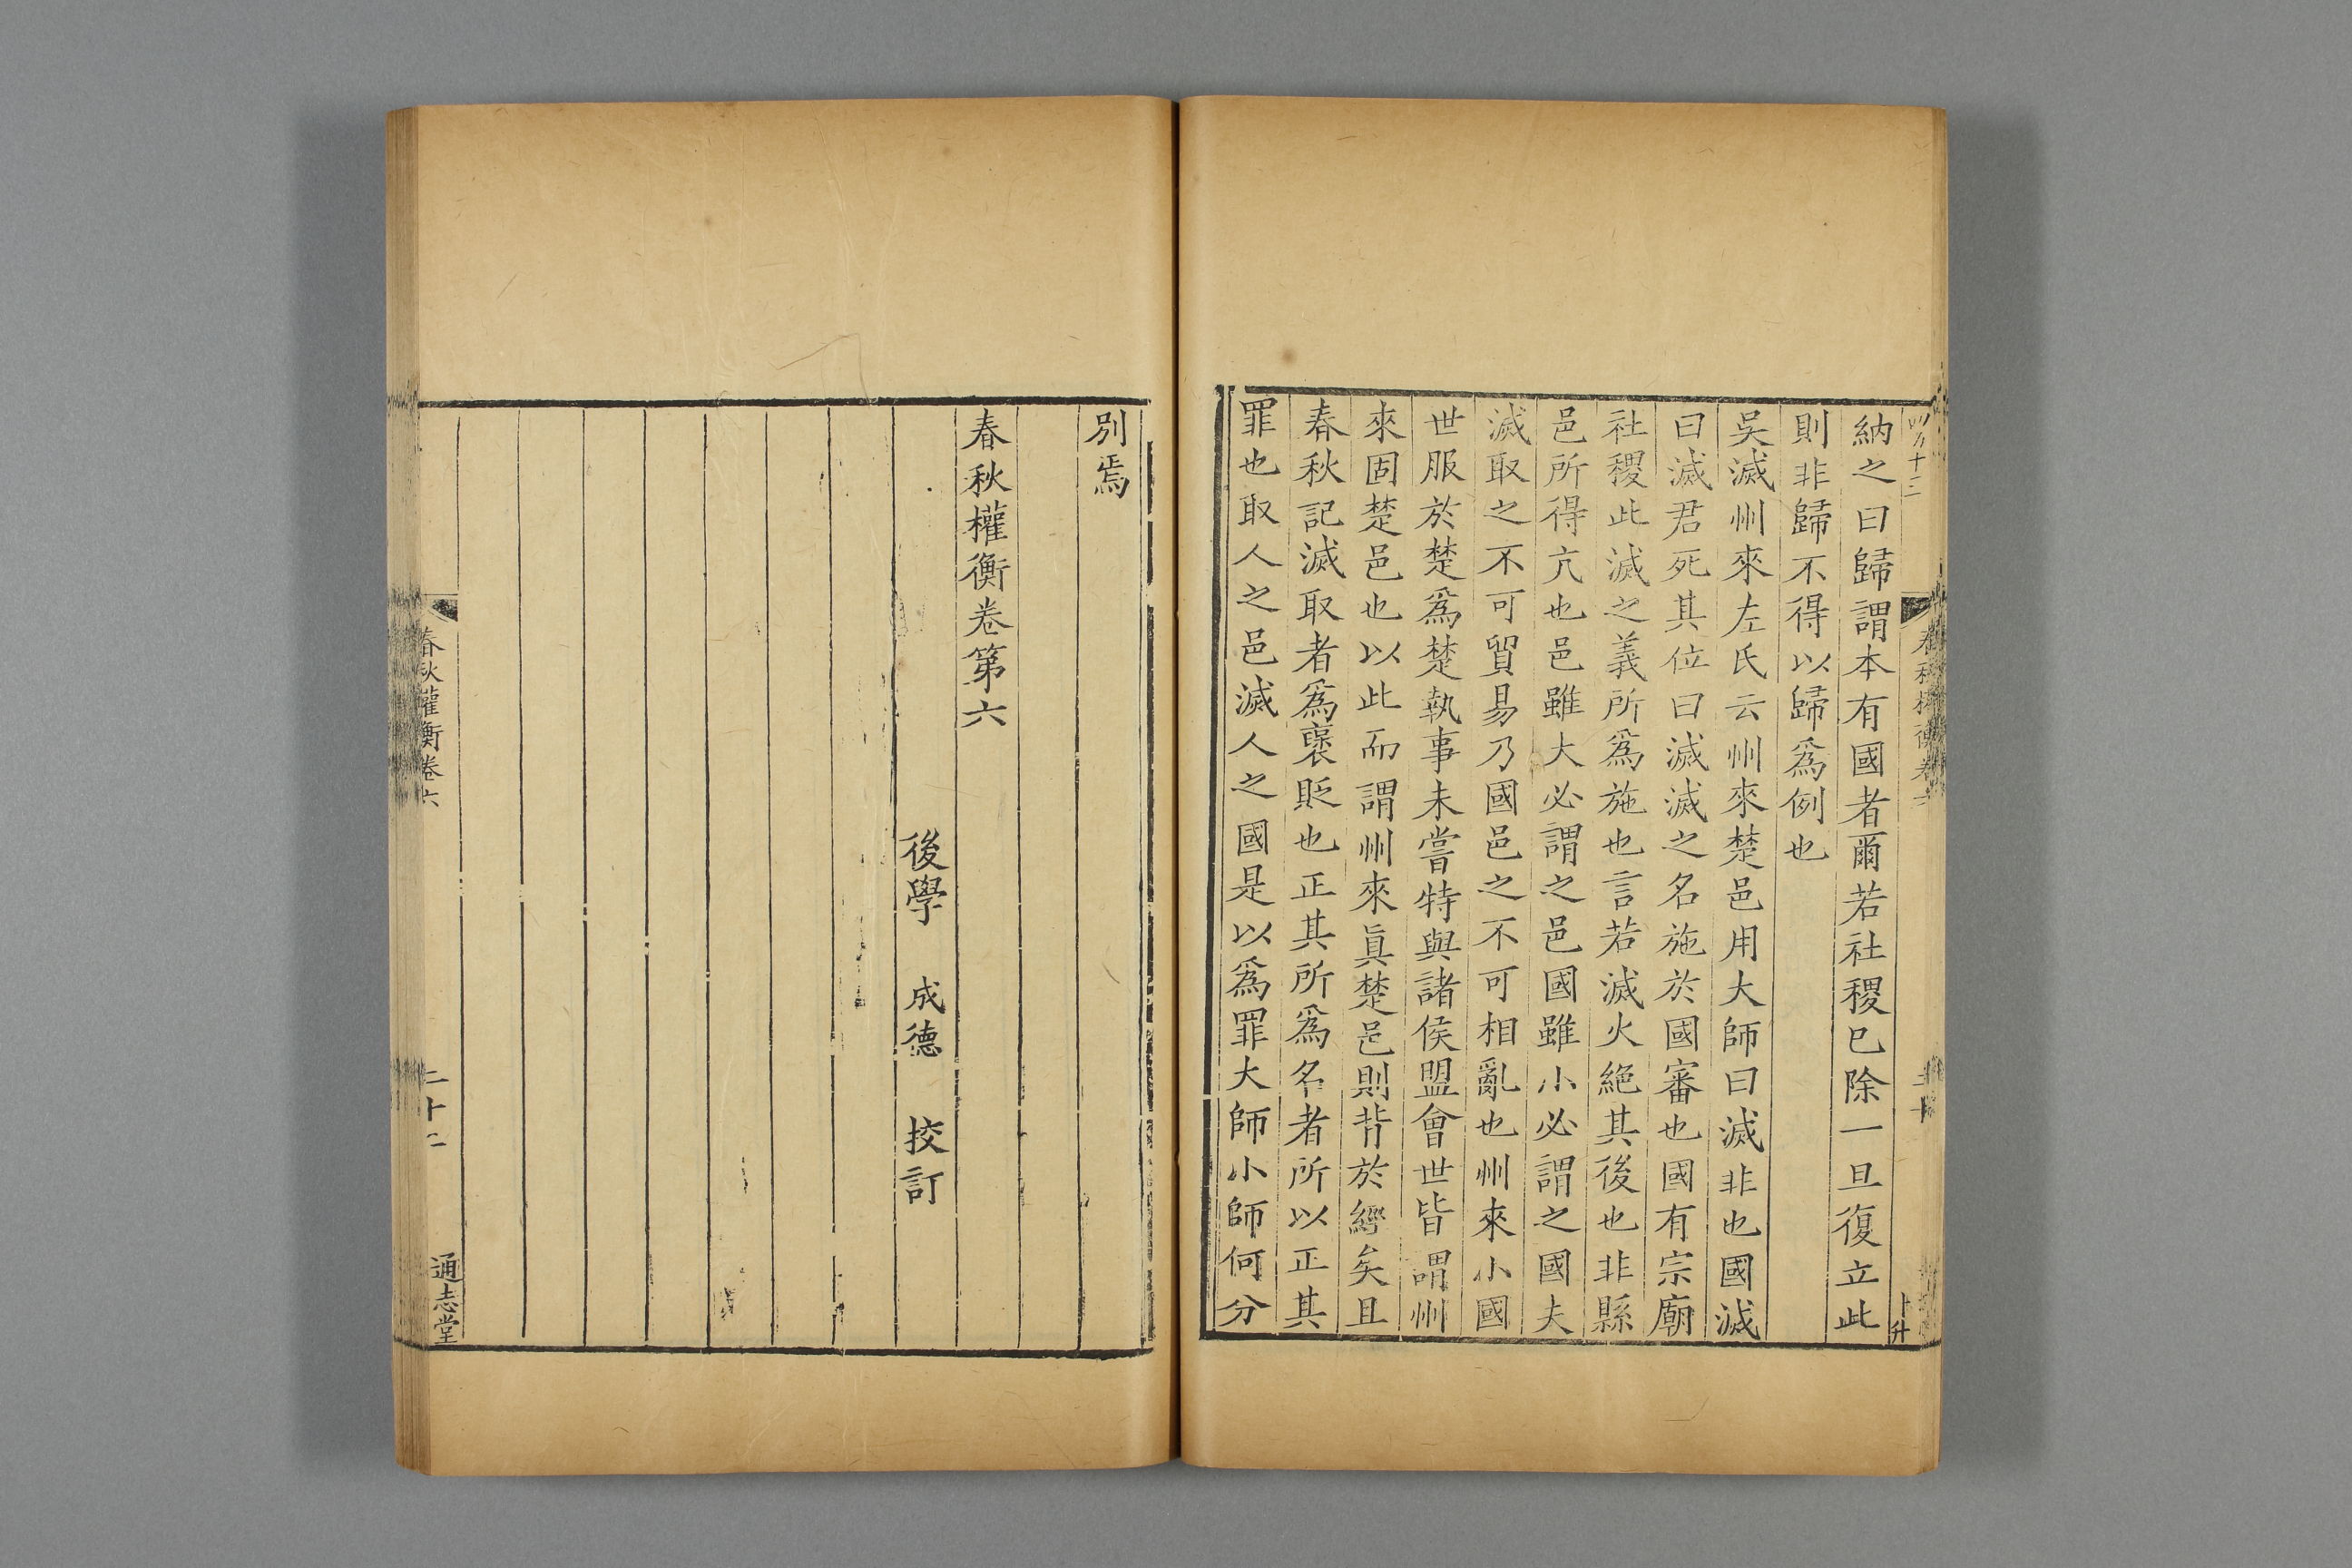 納之曰歸謂本有國者爾若社稷已除一旦復立此
則非歸不得以歸爲例也
吳滅州來左氏云州來楚邑用大師曰滅非也國滅
曰滅君死其位曰滅滅之名施於國審也國有宗廟
社稷此滅之義所爲施也言若滅火絕其後也非縣
邑所得亢也邑雖大必謂之邑國雖小必謂之國夫
滅取之不可貿易乃國邑之不可相亂也州來小國
世服於楚爲楚執事未嘗特與諸侯盟會世皆謂州
來固楚邑也以此而謂州來眞楚邑則背於經矣且
春秋記滅取者爲襃貶也正其所爲名者所以正其
罪也取人之邑滅人之國是以爲罪大師小師何分
別焉
春秋權衡卷第六
後學 成德 挍訂
春秋權衡卷六
二十二
通志堂